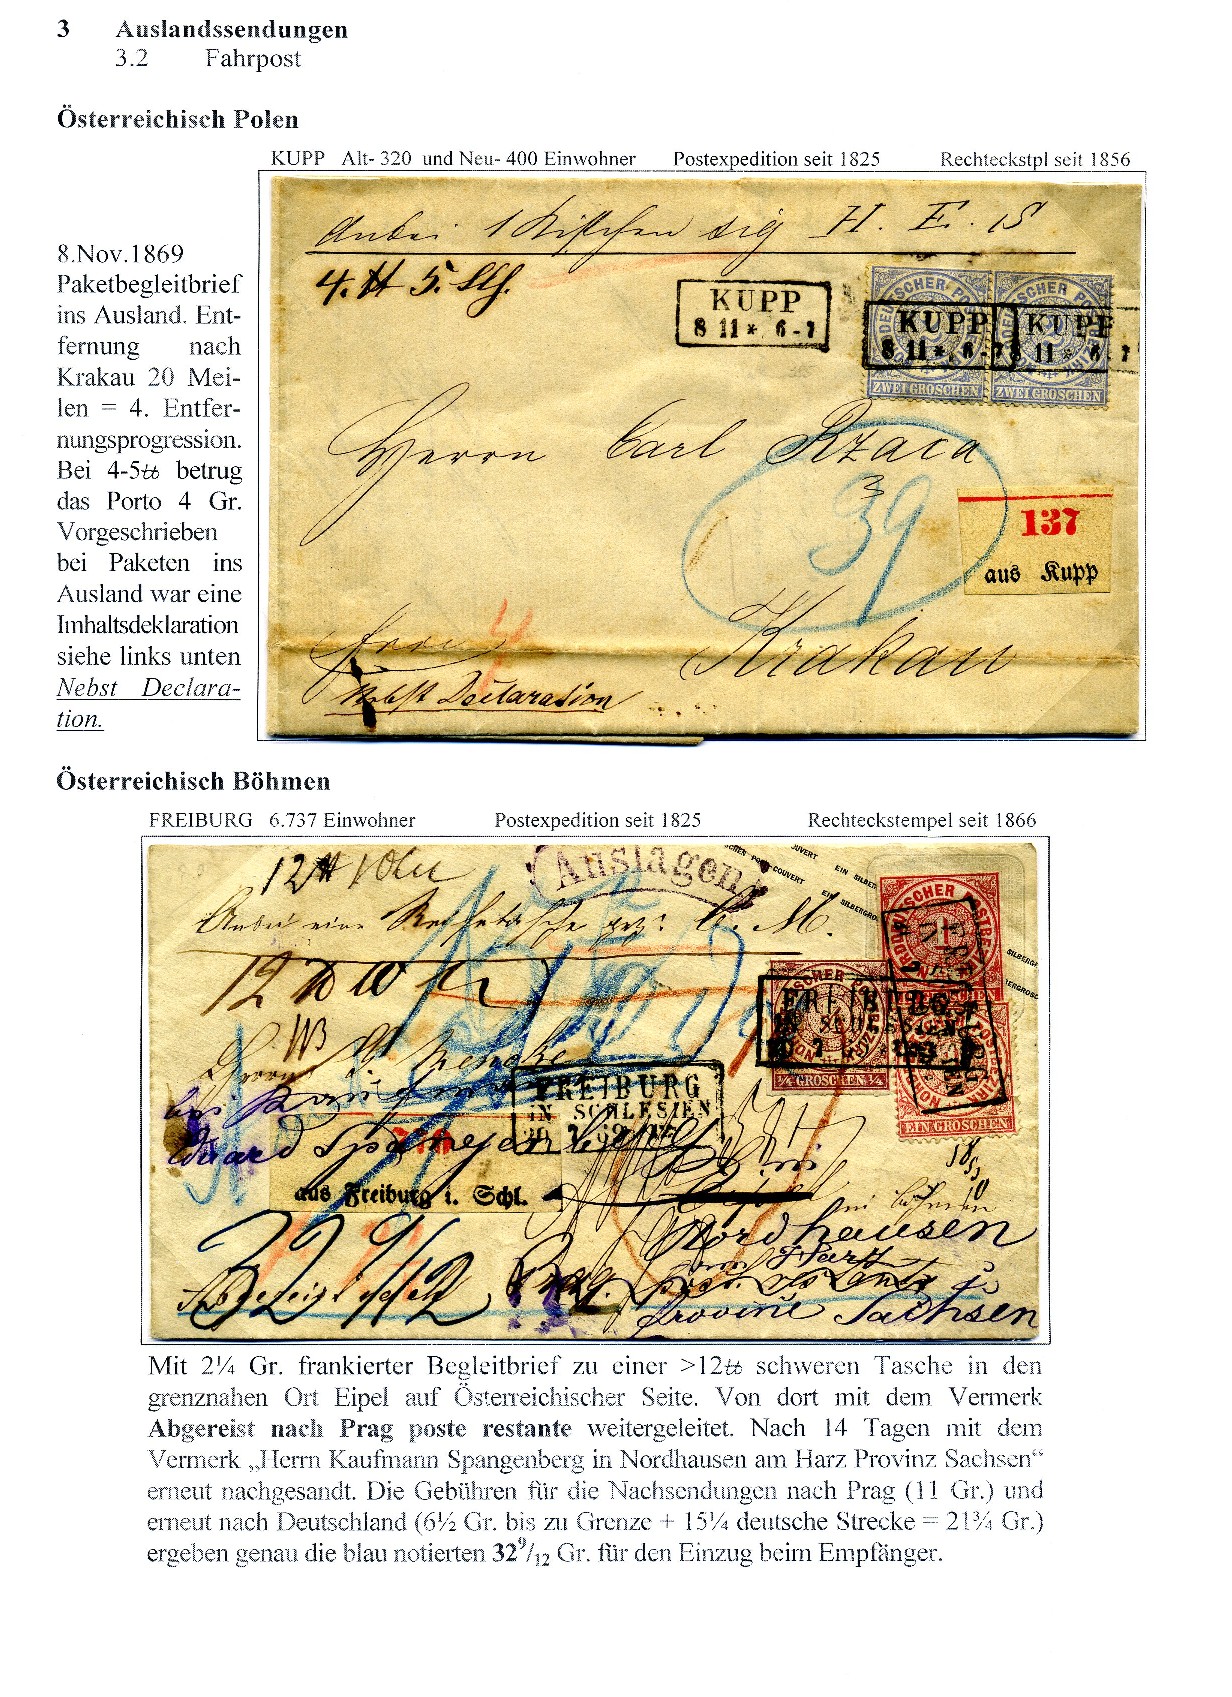 3 Auslandssendungen
3.2 Fahrpost
Österreichisch Polen
KUPP Alt- 320 und Neu- 400 Einwohner Postexpedition seit 1825 Rechteckstpl seit 1856
8.Nov.1869
Paketbegleitbrief
ins Ausland. Ent-
fernung nach
Krakau 20 Mei-
len = 4. Entfer-
nungsprogression.
Bei 4-5℔ betrug
das Porto 4 Gr.
Vorgeschrieben
bei Paketen ins
Ausland war eine
Imhaltsdeklaration
siehe links unten
Nebst Declara-
tion.
Anbei 1 Kistchen sig H. E. S
4. ℔ 5.
KUPP
8 11 * 6-7
KUPP
8 11 * 6-7
KUPP
8 11 * 6-7
ZWEI GROSCHEN
ZWEI GROSCHEN
Herrn Carl Rzaca
39
137
aus Kupp
Krakau
4
Nebst Declaration
Österreichisch Böhmen
FREIBURG 6.737 Einwohner Postexpedition seit 1825 Rechteckstempel seit 1866
12 ℔
Auslagen
Anbei eine
FREIBURG
IN SCHLESIEN
FREIBURG
IN SCHLESIEN
¼ GROSCHEN ¼
EIN GROSCHEN
Eduard Spangenberg
aus Freiburg i. Schl.
in Böhmen
Nordhausen
am Harz
32 9/12
Prag
poste restante
Provinz Sachsen
Mit 2¼ Gr. frankierter Begleitbrief zu einer >12℔ schweren Tasche in den
grenznahen Ort Eipel auf Österreichischer Seite. Von dort mit dem Vermerk
Abgereist nach Prag poste restante weitergeleitet. Nach 14 Tagen mit dem
Vermerk „Herrn Kaufmann Spangenberg in Nordhausen am Harz Provinz Sachsen“
erneut nachgesandt. Die Gebühren für die Nachsendungen nach Prag (11 Gr.) und
erneut nach Deutschland (6½ Gr. bis zu Grenze + 15¼ deutsche Strecke = 21¾ Gr.)
ergeben genau die blau notierten 32⁹/₁₂ Gr. für den Einzug beim Empfänger.